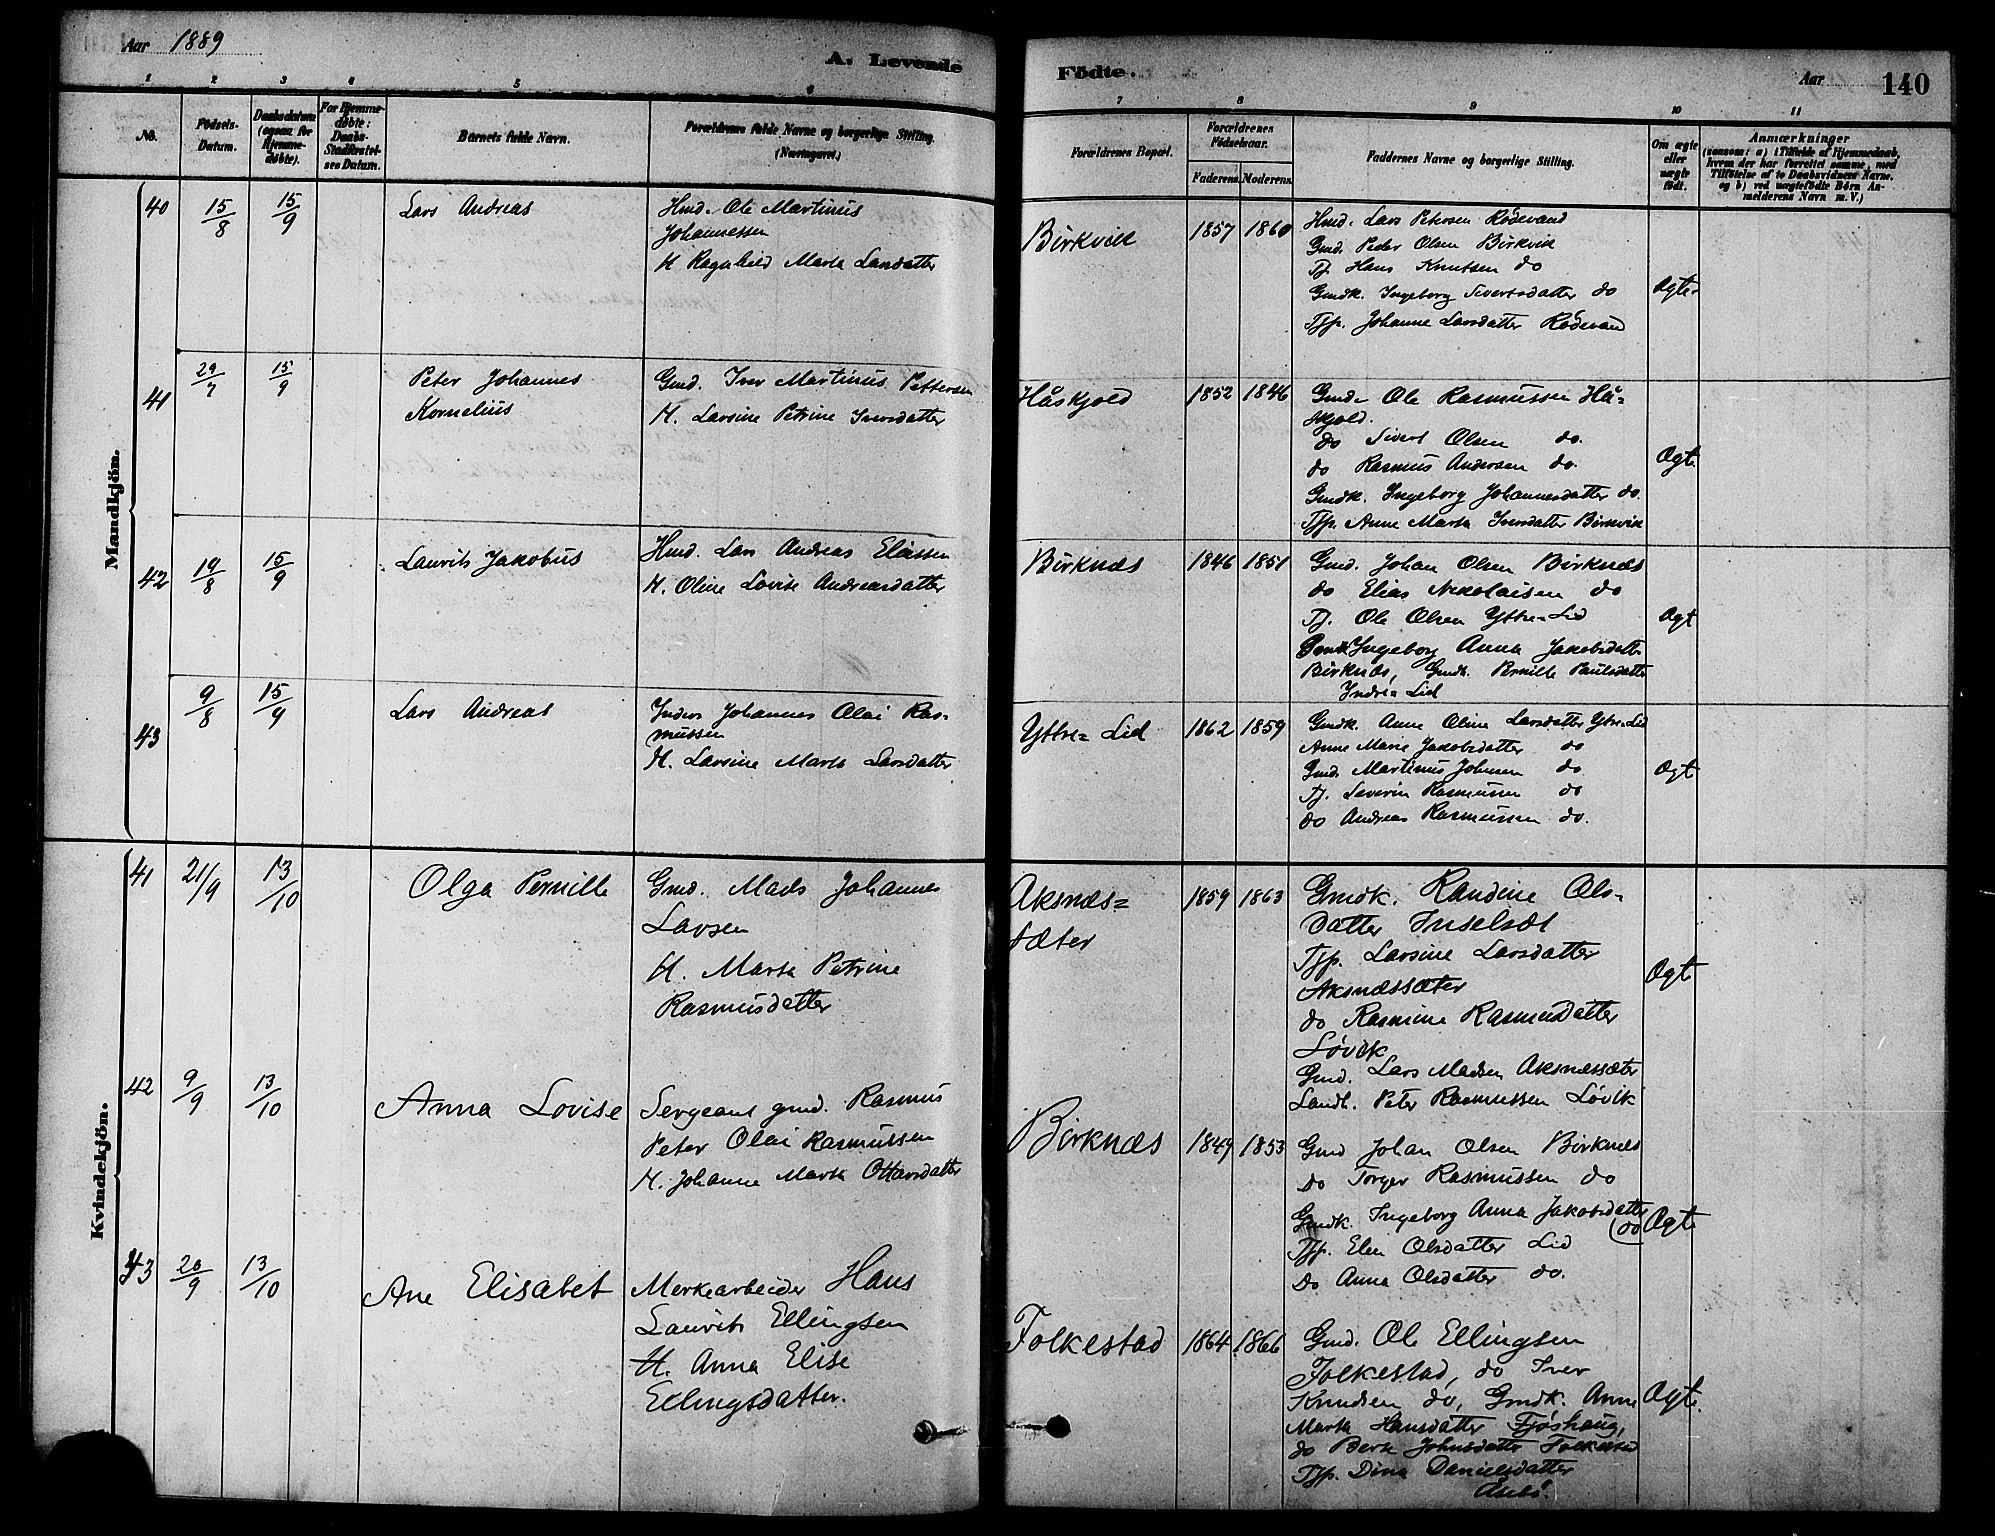 Aar 1889
A. Levende
Födte.
Aar 140
1 2 3 4 5 6 7 8 9 10 11
No.
Födsels-
Datum.
Daabsdatum
(ogsaa for
Hjemme-
døbte).
For Hjemme-
døbte:
Daabs-
Stadfæstel-
ses Datum.
Barnets fulde Navn.
Forældrenes fulde Navne og borgerlige Stilling.
(Næringsvei.)
Forældrenes Bopæl.
Forældrenes
Fødselsaar.
Faderens. Moderens.
Faddernes Navne og borgerlige Stilling.
Om ægte
eller
uægte
født.
Anmærkninger
(saasom: a) i Tilfælde af Hjemmedaab,
hvem der har forrettet samme, med
Tilføielse af to Daabsvidners Navne,
og b) ved uægtefødte Børn An-
melderens Navn m. V.)
Mandkjön.
40 15/8 15/9 Lars Andreas
Hmd. Ole Martinus
Johannessen
H Ragnhild Marta Larsdatter
Birkvik 1857 1860
Hmd. Lars Petersen Rødevand
Gmd. Peder Olsen Birkvik
Tj. Hans Knutsen do
Gmdk. Ingeborg Sivertsdatter do
Tjp. Johanne Larsdatter Rødevand
Ægte
41 29/7 15/9 Peter Johannes
Kornelius
Gmd. Iver Martinus Pettersen
H. Larsine Petrine Iversdatter
Håskjold 1852 1846
Gmd. Ole Rasmussen Hå-
skjold.
do Sivert Olsen do.
do Rasmus Andersen do.
Gmdk. Ingeborg Johannesdatter do.
Tjp. Anne Marta Iversdatter Birkvik
Ægte
42 19/8 15/9 Laurits Jakobus
Hmd. Lars Andreas Eliassen
H. Oline Lovise Andreasdatter
Birknæs 1846 1851
Gmd. Johan Olsen Birknæs
do Elias Nikolaisen do
Tj. Ole Olsen Yttre-Lid
Gmdk Ingeborg Anna Jakobsdatter
Birknæs, Gmdk. Pernille Paulsdatter
Indre-Lid
Ægt
43 9/8 15/9 Lars Andreas
Inders Johannes Olai Ras-
mussen
H. Larsine Marta Larsdatter
Yttre-Lid 1862 1859
Gmdk. Anne Oline Larsdatter Ytre-Lid
Anne Marie Jakobsdatter do
Gmd. Martinus Johnsen do
Tj. Severin Rasmussen do
do Andreas Rasmussen do.
Ægt
Kvindekjön.
41 21/9 13/10 Olga Pernille
Gmd. Mads Johannes
Larsen
H. Marta Petrine
Rasmusdatter
Aksnæs-
sæter 1859 1863
Gmdk. Randine Ols-
datter Inselsæt
Tjp. Larsine Larsdatter
Aksnæssæter
do Rasmine Rasmusdatter
Løvik
Gmd. Lars Madsen Aksnæssæter
Landh. Peter Rasmussen Løvik
Ægte
42 9/9 13/10 Anna Lovise
Sergeant gmd. Rasmus
Peter Olai Rasmussen
H. Johanne Marta Ottarsdatter
Birknæs 1849 1853
Gmd Johan Olsen Birknæs
do Torger Rasmussen do
Gmdk. Ingeborg Anna Jakobsdatter
do
Tjp. Elen Olsdatter Lid
do Anna Olsdatter do.
Ægte
43 20/9 13/10 Ane Elisabet
Merkearbeider Hans
Laurits Ellingsen
H. Anna Elise
Ellingsdatter.
Folkestad 1864 1866
Gmd. Ole Ellingsen
Folkestad, do Iver
Knudsen do, Gmdk. Anne
Marta Hansdatter Fjøshaug,
do Berte Johnsdatter Folkestad
Tjp. Dina Danielsdatter
Åsebø.
Ægte.